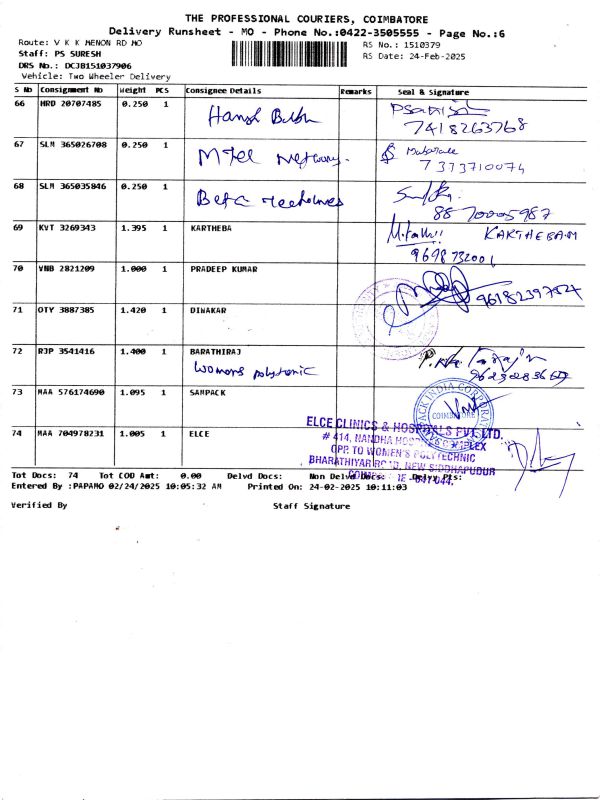 THE PROFESSIONAL COURIERS, COIMBATORE
Delivery Runsheet - MO - Phone No.:0422-3505555 - Page No.:6
Route: V K K MENON RD MO
RS No.: 1510379
Staff: PS SURESH
RS Date: 24-Feb-2025
DRS No.: DCJB151037906
Vehicle: Two Wheeler Delivery
S No Consignment No Weight PCS Consignee Details Remarks Seal & Signature
66 HRD 20707485 0.250 1
7418263768
67 SLM 365026708 0.250 1 Mtel
7373710074
68 SLM 365035846 0.250 1 Beta
8870005987
69 KVT 3269343 1.395 1 KARTHEBA KARTHEBAM
9698732001
70 VNB 2821209 1.000 1 PRADEEP KUMAR
71 OTY 3887385 1.420 1 DINAKAR
72 RJP 3541416 1.400 1 BARATHIRAJ
Womens polytecnic
73 MAA 576174690 1.095 1 SAMPACK
PACK INDIA CORPORATION
COIMBATORE
74 MAA 704978231 1.005 1 ELCE
ELCE CLINICS & HOSPITALS PVT. LTD.
# 414, NANDHA HOSPITAL COMPLEX
OPP. TO WOMEN'S POLYTECHNIC
BHARATHIYAR ROAD, NEW SIDDHAPUDUR
COIMBATORE - 641 044.
Tot Docs: 74 Tot COD Amt: 0.00 Delvd Docs: Non Delvd Docs: Delvy Pts:
Entered By :PAPAMO 02/24/2025 10:05:32 AM Printed On: 24-02-2025 10:11:03
Verified By Staff Signature